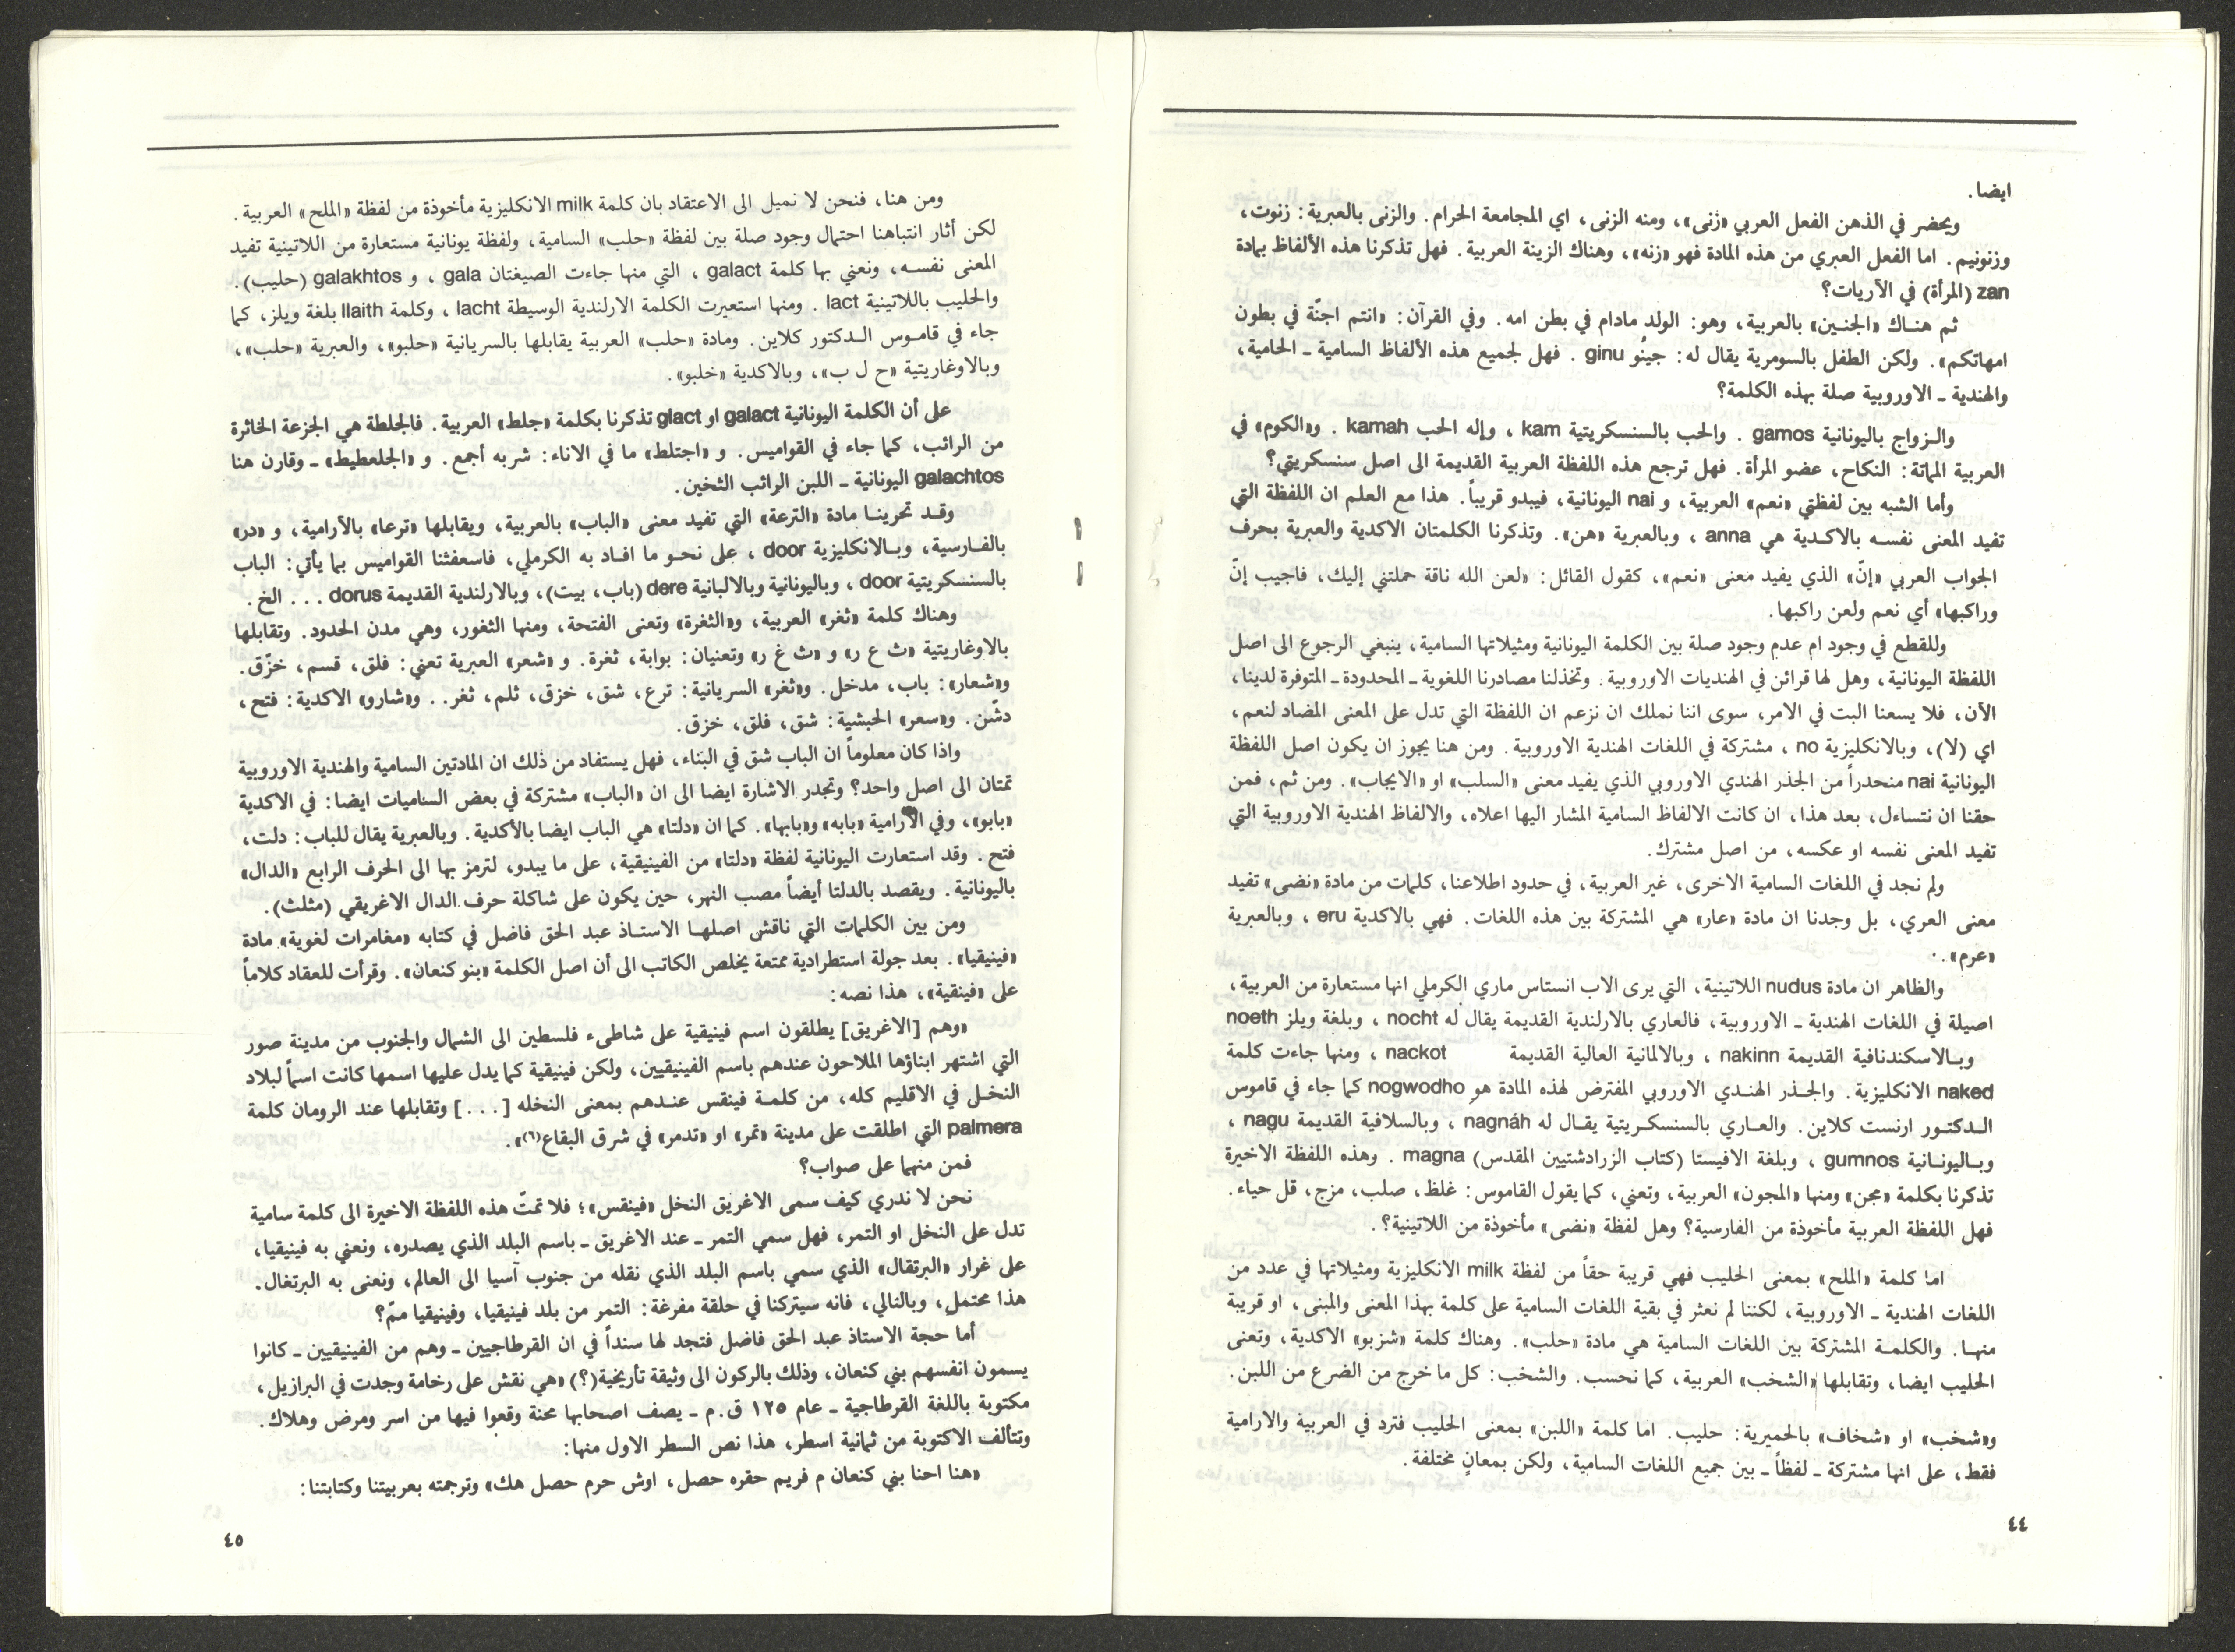 ايضا.
ويحضر في الذهن الفعل العربي «زنى»، ومنه الزنى، اي المجامعة الحرام. والزنى بالعبرية: زنوت،
وزنونيم. اما الفعل العبري من هذه المادة فهو «زنه»، وهناك الزينة العربية. فهل تذكرنا هذه الألفاظ بمادة
zan (المرأة) في الآريات؟
ثم هناك «الجنين» بالعربية، وهو: الولد مادام في بطن امه. وفي القرآن: «انتم اجنّة في بطون
امهاتكم». ولكن الطفل بالسومرية يقال له: جينُو ginu . فهل لجميع هذه الألفاظ السامية ـ الحامية،
والهندية ـ الاوروبية صلة بهذه الكلمة؟
والزواج باليونانية gamos . والحب بالسنسكريتية kam ، وإله الحب kamah . و«الكوم» في
العربية المماتة: النكاح، عضو المرأة. فهل ترجع هذه اللفظة العربية القديمة الى اصل سنسكريتي؟
وأما الشبه بين لفظتي «نعم» العربية، و nai اليونانية، فيبدو قريباً. هذا مع العلم ان اللفظة التي
تفيد المعنى نفسه بالاكدية هي anna ، وبالعبرية «هن». وتذكرنا الكلمتان الاكدية والعبرية بحرف
الجواب العربي «إنّ» الذي يفيد معنى «نعم»، كقول القائل: «لعن الله ناقة حملتني إليك، فاجيب إنّ
وراكبها» أي نعم ولعن راكبها.
وللقطع في وجود ام عدم وجود صلة بين الكلمة اليونانية ومثيلاتها السامية، ينبغي الرجوع الى اصل
اللفظة اليونانية، وهل لها قرائن في الهنديات الاوروبية. وتخذلنا مصادرنا اللغوية ـ المحدودة ـ المتوفرة لدينا،
الآن، فلا يسعنا البت في الامر، سوى اننا نملك ان نزعم ان اللفظة التي تدل على المعنى المضاد لنعم،
اي (لا)، وبالانكليزية no ، مشتركة في اللغات الهندية الاوروبية. ومن هنا يجوز ان يكون اصل اللفظة
اليونانية nai منحدراً من الجذر الهندي الاوروبي الذي يفيد معنى «السلب» او «الايجاب». ومن ثم، فمن
حقنا ان نتساءل، بعد هذا، ان كانت الالفاظ السامية المشار اليها اعلاه، والالفاظ الهندية الاوروبية التي
تفيد المعنى نفسه او عكسه، من اصل مشترك.
ولم نجد في اللغات السامية الاخرى، غير العربية، في حدود اطلاعنا، كلمات من مادة «نضى» تفيد
معنى العري، بل وجدنا ان مادة «عار» هي المشتركة بين هذه اللغات. فهي بالاكدية eru ، وبالعبرية
«عرم».
والظاهر ان مادة nudus اللاتينية، التي يرى الاب انستاس ماري الكرملي انها مستعارة من العربية،
اصيلة في اللغات الهندية ـ الاوروبية، فالعاري بالارلندية القديمة يقال له nocht ، وبلغة ويلز noeth
وبالاسكندنافية القديمة nakinn ، وبالالمانية العالية القديمة nackot ، ومنها جاءت كلمة
naked الانكليزية. والجذر الهندي الاوروبي المفترض لهذه المادة هو nogwodho كما جاء في قاموس
الدكتور ارنست كلاين. والعاري بالسنسكريتية يقال له nagnáh ، وبالسلافية القديمة nagu ،
وباليونانية gumnos ، وبلغة الافيستا (كتاب الزرادشتيين المقدس) magna . وهذه اللفظة الاخيرة
تذكرنا بكلمة «مجن» ومنها «المجون» العربية، وتعني، كما يقول القاموس: غلظ، صلب، مزج، قل حياء.
فهل اللفظة العربية مأخوذة من الفارسية؟ وهل لفظة «نضى» مأخوذة من اللاتينية؟.
اما كلمة «الملح» بمعنى الحليب فهي قريبة حقاً من لفظة milk الانكليزية ومثيلاتها في عدد من
اللغات الهندية ـ الاوروبية، لكننا لم نعثر في بقية اللغات السامية على كلمة بهذا المعنى والمبنى، او قريبة
منها. والكلمة المشتركة بين اللغات السامية هي مادة «حلب». وهناك كلمة «شزبو» الاكدية، وتعنى
الحليب ايضا، وتقابلها «الشخب» العربية، كما نحسب. والشخب: كل ما خرج من الضرع من اللبن.
و«شخب» او «شخاف» بالحميرية: حليب. اما كلمة «اللبن» بمعنى الحليب فترد في العربية والارامية
فقط، على انها مشتركة ـ لفظاً ـ بين جميع اللغات السامية، ولكن بمعانٍ مختلفة.
٤٤
ومن هنا، فنحن لا نميل الى الاعتقاد بان كلمة milk الانكليزية مأخوذة من لفظة «الملح» العربية.
لكن أثار انتباهنا احتمال وجود صلة بين لفظة «حلب» السامية، ولفظة يونانية مستعارة من اللاتينية تفيد
المعنى نفسه، ونعني بها كلمة galact ، التي منها جاءت الصيغتان gala ، و galakhtos (حليب).
والحليب باللاتينية lact . ومنها استعيرت الكلمة الارلندية الوسيطة lacht ، وكلمة llaith بلغة ويلز، كما
جاء في قاموس الدكتور كلاين. ومادة «حلب» العربية يقابلها بالسريانية «حلبو»، والعبرية «حلب»،
وبالاوغاريتية «ح ل ب»، وبالاكدية «خلبو».
على أن الكلمة اليونانية galact او glact تذكرنا بكلمة «جلط» العربية. فالجلطة هي الجزعة الخاثرة
من الرائب، كما جاء في القواميس. و «اجتلط» ما في الاناء: شربه أجمع. و «الجلعطيط» ـ وقارن هنا
galachtos اليونانية ـ اللبن الرائب الثخين.
وقد تحرينا مادة «الترعة» التي تفيد معنى «الباب» بالعربية، ويقابلها «ترعا» بالآرامية، و «در»
بالفارسية، وبالانكليزية door ، على نحو ما افاد به الكرملي، فاسعفثنا القواميس بما يأتي: الباب
بالسنسكريتية door ، وباليونانية وبالالبانية dere (باب، بيت)، وبالارلندية القديمة dorus . . . الخ.
وهناك كلمة «ثغر» العربية، و«الثغرة» وتعنى الفتحة، ومنها الثغور، وهي مدن الحدود. وتقابلها
بالاوغاريتية «ث ع ر» و «ث غ ر» وتعنيان: بوابة، ثغرة. و «شعر» العبرية تعني: فلق، قسم، خزّق.
و«شعار»: باب، مدخل. و«ثغر» السريانية: ترع، شق، خزق، ثلم، ثغر.. و«شارو» الاكدية: فتح،
دشّن. و«سعر» الحبشية: شق، فلق، خزق.
واذا كان معلوماً ان الباب شق في البناء، فهل يستفاد من ذلك ان المادتين السامية والهندية الاوروبية
تمتان الى اصل واحد؟ وتجدر الاشارة ايضا الى ان «الباب» مشتركة في بعض الساميات ايضا: في الاكدية
«بابو»، وفي الآرامية «بابه» و«بابها». كما ان «دلتا» هي الباب ايضا بالأكدية. وبالعبرية يقال للباب: دلت،
فتح. وقد استعارت اليونانية لفظة «دلتا» من الفينيقية، على ما يبدو، لترمز بها الى الحرف الرابع «الدال»
باليونانية. ويقصد بالدلتا أيضاً مصب النهر، حين يكون على شاكلة حرف الدال الاغريقي (مثلث).
ومن بين الكلمات التي ناقش اصلها الاستاذ عبد الحق فاضل في كتابه «مغامرات لغوية» مادة
«فينيقيا». بعد جولة استطرادية ممتعة يخلص الكاتب الى أن اصل الكلمة «بنو كنعان». وقرأت للعقاد كلاماً
على «فينقية»، هذا نصه:
«وهم [الاغريق] يطلقون اسم فينيقية على شاطىء فلسطين الى الشمال والجنوب من مدينة صور
التي اشتهر ابناؤها الملاحون عندهم باسم الفينيقيين، ولكن فينيقية كما يدل عليها اسمها كانت اسماً لبلاد
النخل في الاقليم كله، من كلمة فينقس عندهم بمعنى النخله [. . .] وتقابلها عند الرومان كلمة
palmera التي اطلقت على مدينة «تمر» او «تدمر» في شرق البقاع(٦)».
فمن منهما على صواب؟
نحن لا ندري كيف سمى الاغريق النخل «فينقس»؛ فلا تمتّ هذه اللفظة الاخيرة الى كلمة سامية
تدل على النخل او التمر، فهل سمي التمر ـ عند الاغريق ـ باسم البلد الذي يصدره، ونعني به فينيقيا،
على غرار «البرتقال» الذي سمي باسم البلد الذي نقله من جنوب آسيا الى العالم، ونعنى به البرتغال.
هذا محتمل، وبالتالي، فانه سيتركنا في حلقة مفرغة: التمر من بلد فينيقيا، وفينيقيا ممّ؟
أما حجة الاستاذ عبد الحق فاضل فتجد لها سنداً في ان القرطاجيين ـ وهم من الفينيقيين ـ كانوا
يسمون انفسهم بني كنعان، وذلك بالركون الى وثيقة تأريخية(؟) «هي نقش على رخامة وجدت في البرازيل،
مكتوبة باللغة القرطاجية ـ عام ١٢٥ ق.م ـ يصف اصحابها محنة وقعوا فيها من اسر ومرض وهلاك.
وتتألف الاكتوبة من ثمانية اسطر، هذا نص السطر الاول منها:
«هنا احنا بني كنعان م فريم حقره حصل، اوش حرم حصل هك» وترجمته بعربيتنا وكتابتنا:
٤٥